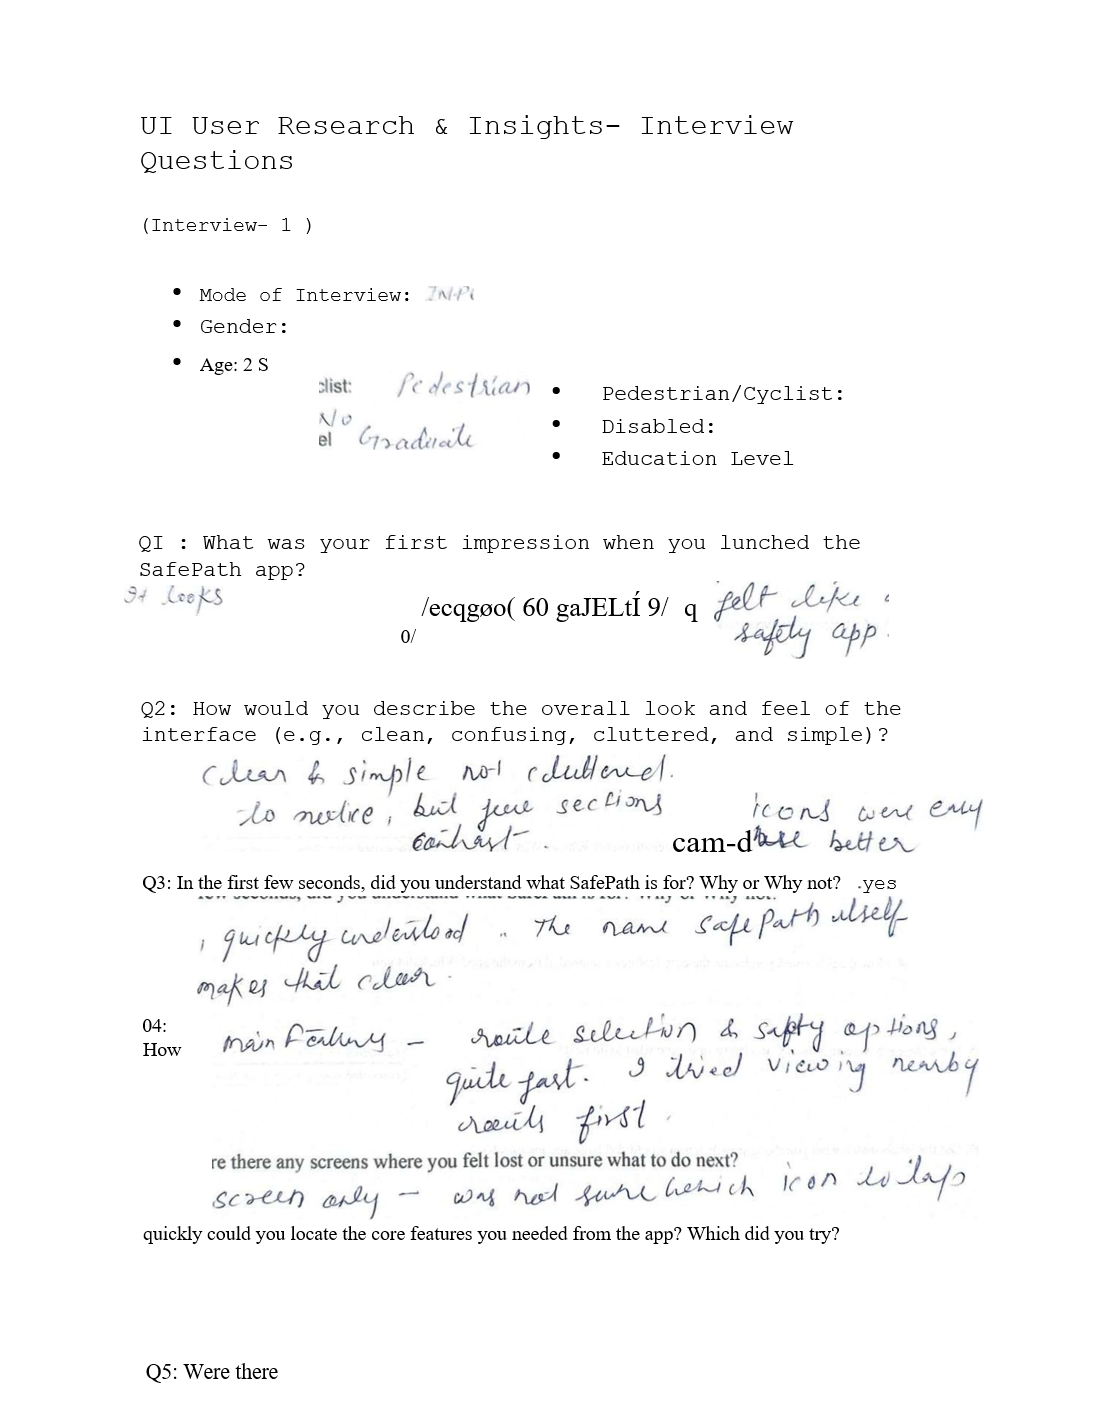 UI User Research & Insights- Interview
Questions
(Interview- 1 )
• Mode of Interview: IN-P
• Gender:
• Age: 2 S
clist: Pedestrian
No
el Graduate
• Pedestrian/Cyclist:
• Disabled:
• Education Level
QI : What was your first impression when you lunched the
SafePath app?
It looks
/ecqgøo( 60 gaJELtÍ 9/ q felt like
0/
safety app.
Q2: How would you describe the overall look and feel of the
interface (e.g., clean, confusing, cluttered, and simple)?
Clear & simple not cluttered.
icons were easy
to notice, but few sections
cam-d better
contrast.
Q3: In the first few seconds, did you understand what SafePath is for? Why or Why not? .yes
few seconds, did you understand what SafePath is for? Why or Why not?
, quickly understood. The name SafePath itself
makes that clear.
04:
How
main features – route selection & safty options,
quite fast. I tried viewing nearby
routs first.
re there any screens where you felt lost or unsure what to do next?
screen only – was not sure which icon to tap
quickly could you locate the core features you needed from the app? Which did you try?
Q5: Were there